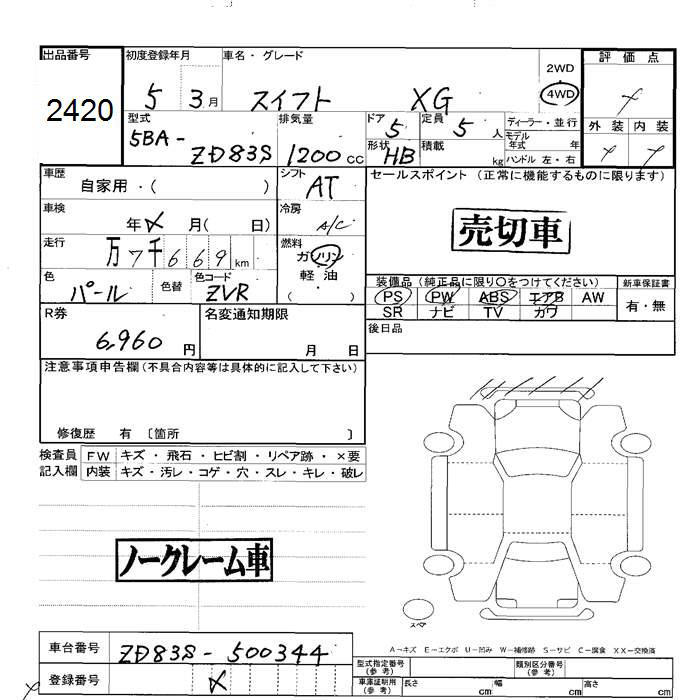 出品番号
2420
初度登録年月
5 3月
車名・グレード
スイフト XG
2WD
4WD
評価点
外装 内装
型式
5BA-
ZD83S
排気量
1200 CC
ドア
5
定員
5 人
形状
HB
積載
kg
ディーラー・並行
モデル
年式 年
ハンドル 左・右
車歴
自家用・( )
シフト
AT
セールスポイント (正常に機能するものに限ります)
売切車
車検
年 月( 日)
冷房
A/C
走行
万7千669km
燃料
ガソリン
軽油
( )
色
パール
色替
色コード
ZVR
装備品(純正品に限り〇をつけてください)
PS PW ABS エアB AW
SR ナビ TV カワ
新車保証書
有・無
R券
6,960 円
名変通知期限
月 日
後日品
注意事項申告欄(不具合内容等は具体的に記入して下さい)
修復歴 有 〔箇所 〕
検査員
記入欄
FW キズ・飛石・ヒビ割・リペア跡・×要
内装 キズ・汚レ・コゲ・穴・スレ・キレ・破レ
ノークレーム車
スペア
A－キズ E－エクボ U－凹み W－補修跡 S－サビ C－腐食 XX－交換済
車台番号
ZD83S-500344
登録番号
型式指定番号
(参考)
類別区分番号
(参考)
車庫証明用
(参考)
長さ cm 幅 cm 高さ cm